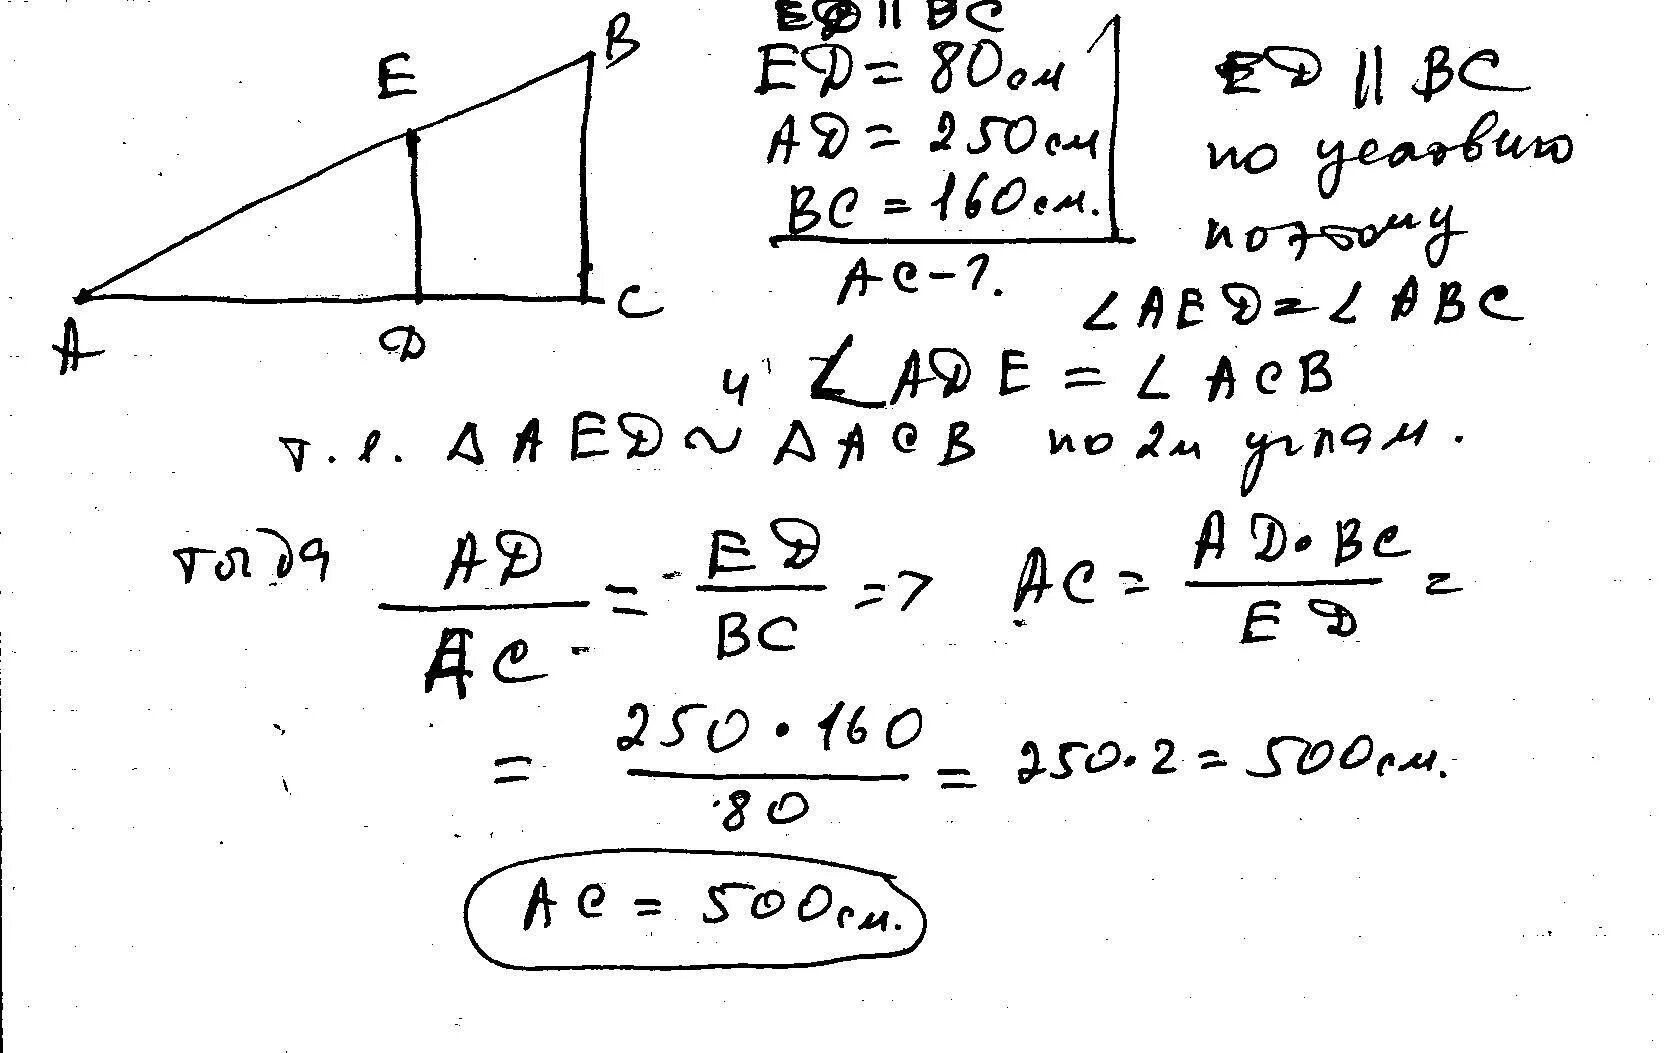 E B
A D C
ED || BC
ED = 80см
AD = 250см
BC = 160см.
AC - ?
ED || BC
по условию
поэтому
∠AED = ∠ABC
и ∠ADE = ∠ACB
т.е. △AED ~ △ACB по 2м углам.
тогда AD/AC = ED/BC => AC = AD·BC/ED =
= 250·160/80 = 250·2 = 500см.
AC = 500см.